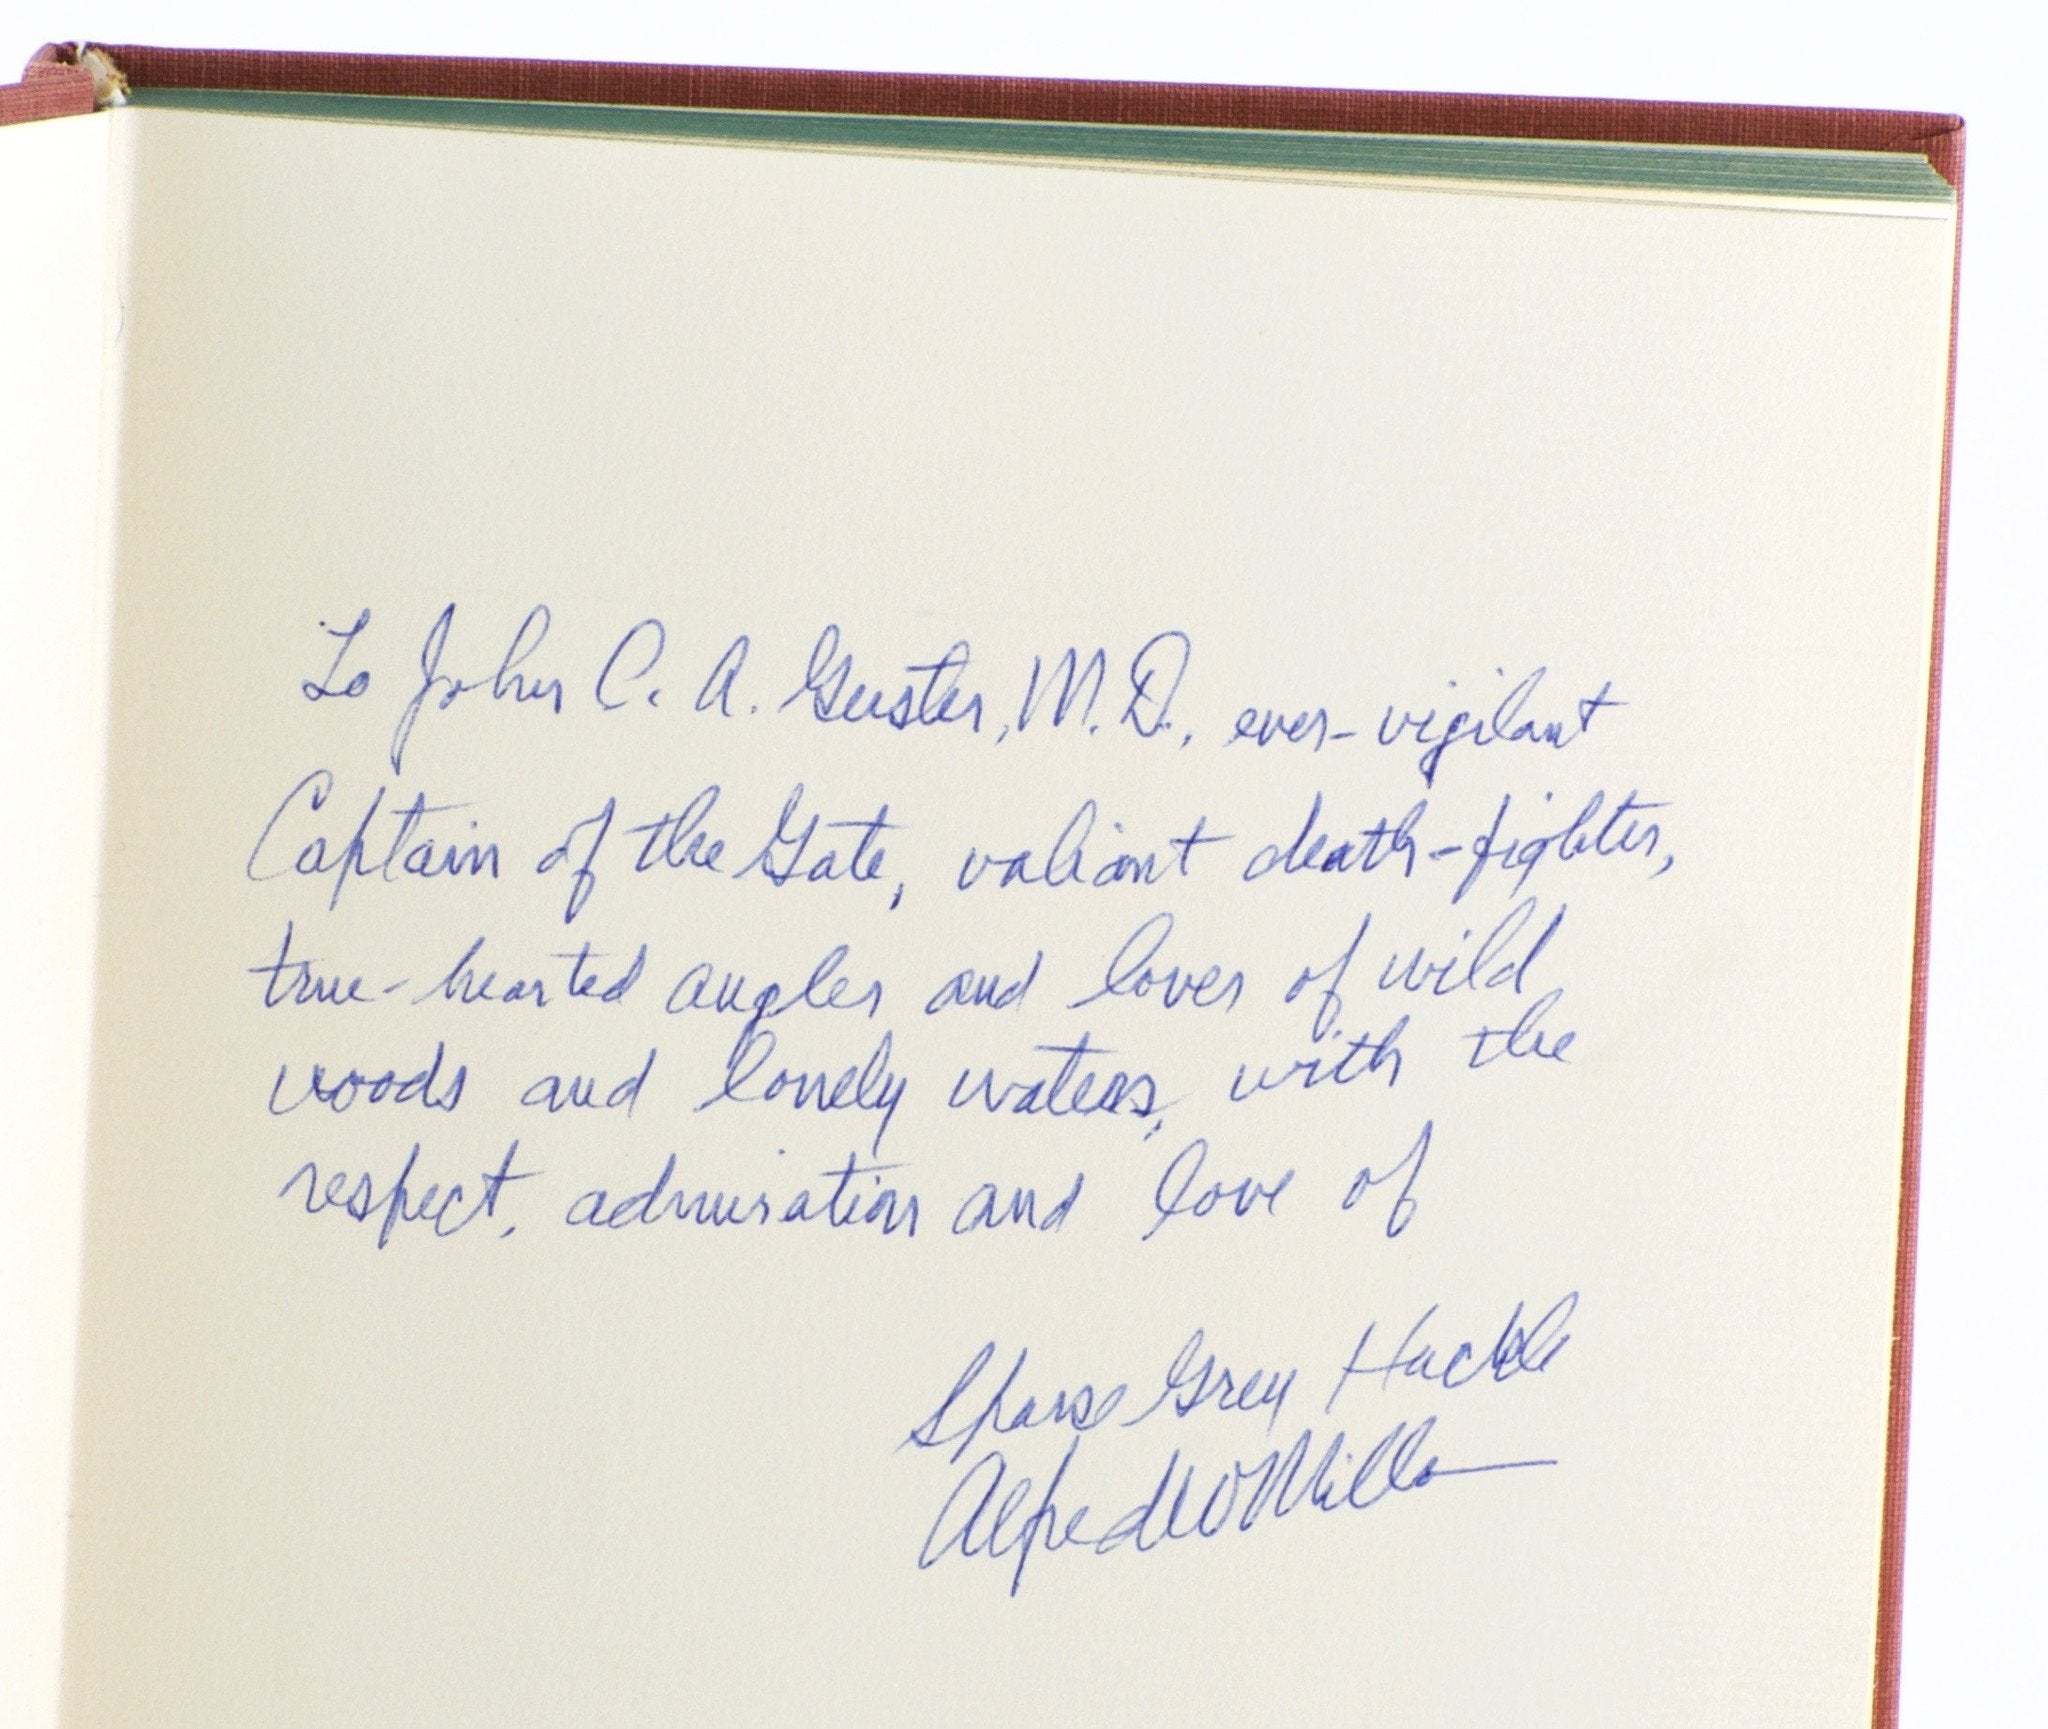 To John C. A. Gerster, M.D., ever-vigilant
Captain of the Gate, valiant death-fighter,
true-hearted angler and lover of wild
woods and lonely waters, with the
respect, admiration and love of
Sparse Grey Hackle
Alfred W Miller